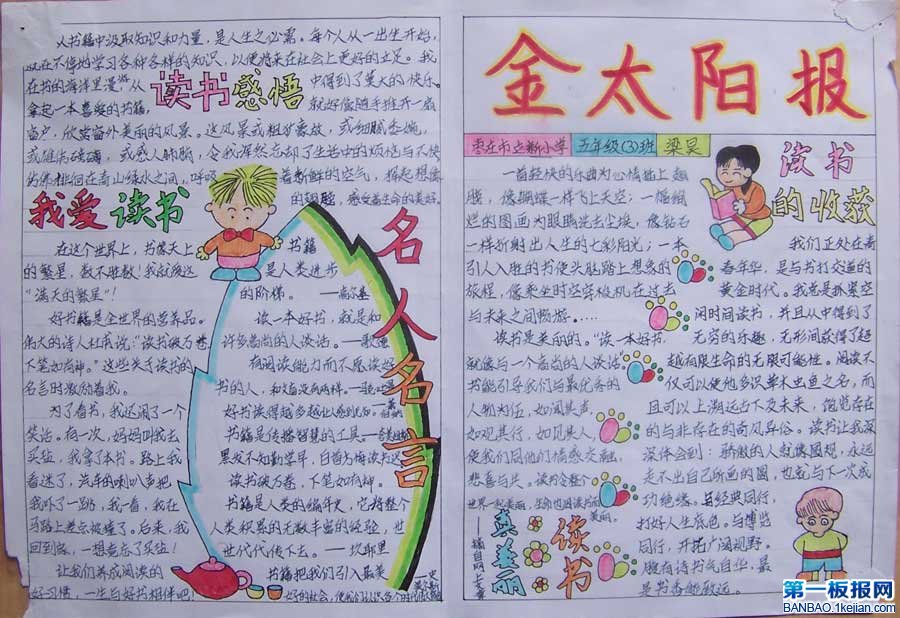 从书籍中汲取知识和力量，是人生之必需。每个人从一出生开始，
就在不停地学习各种各样的知识，以便将来在社会上更好的立足。我
在书的海洋里漫游，从
中得到了莫大的快乐。
读书感悟
拿起一本喜爱的书籍，
就好像随手推开一扇
窗户，欣赏窗外美丽的风景。这风景或粗犷豪放，或细腻委婉，
或雄伟磅礴，或感人肺腑，令我浑然忘却了生活中的烦恼与不快
仿佛徘徊在青山绿水之间，呼吸
着新鲜的空气，扬起想像
的翅膀，感受着生命的美好。
我爱读书
在这个世界上，书像天上
的繁星，数不胜数！我就疯这
“满天的繁星”！
好书籍是全世界的营养品。
伟大的诗人杜甫说：“读书破万卷
下笔如有神。”这些关于读书的
名言时激励着我。
为了看书，我还闹了一个
笑话。有一次，妈妈叫我去
买盐，我拿了本书。路上我
看迷了，汽车的喇叭声把
我吓了一跳，我一看，我在
马路上差点被撞了。后来，我
回到家，一想竟忘了买盐！
让我们养成阅读的
好习惯，一生与好书相伴吧！
名人名言
书籍
是人类进步
的阶梯。——高尔基
读一本好书，就是和
许多高尚的人谈话。——歌德
有阅读能力而不愿读好
书的人，和文盲没有两样。
好书读得越多越让人感到无知。
书籍是传播智慧的工具。
黑发不知勤学早，白首方悔读书迟
读书破万卷，下笔如有神。
书籍是人类的编年史，它将整个
人类积累的无数丰富的经验，世
世代代传下去。
书籍把我们引入最美
好的社会，使我们认识各个时代的
金太阳报
枣庄市立新小学
五年级(3)班
梁昊
一首轻快的乐曲为心情插上翅
膀，像蝴蝶一样飞上天空；一幅绚
烂的图画为眼睛洗去尘埃，像钻石
一样折射出人生的七彩阳光；一本
引人入胜的书使头脑踏上想象的
旅程，像乘坐时空穿梭机在过去
与未来之间畅游。……
读书是美丽的。“读一本好书，
就像与一个高尚的人谈话”
书能引导我们与最优秀的
人物为伍，如闻其声，
如观其行，如见其人，
使我们同他们情感交融，
悲喜与共。读书会使
世界一起美丽，
美丽。
读书
真美丽
读书
的收获
我们正处在青
春年华，是与书打交道的
黄金时代。我总是抓紧空
闲时间读书，并且从中得到了
无穷的乐趣，无形间获得了超
越有限生命的无限可能性。阅读不
仅可以使他多识草木虫鱼之名，而
且可以上溯远古下及未来，饱览存在
的与非存在的奇风异俗。读书让我深
深体会到：骄傲的人就像圆规，永远
走不出自己所画的圆，也就与下一次成
功绝缘。与经典同行，
打好人生底色。与博览
同行，开拓广阔视野。
腹有诗书气自华，最
是书香能致远。
第一板报网
BANBAO.1kejian.com